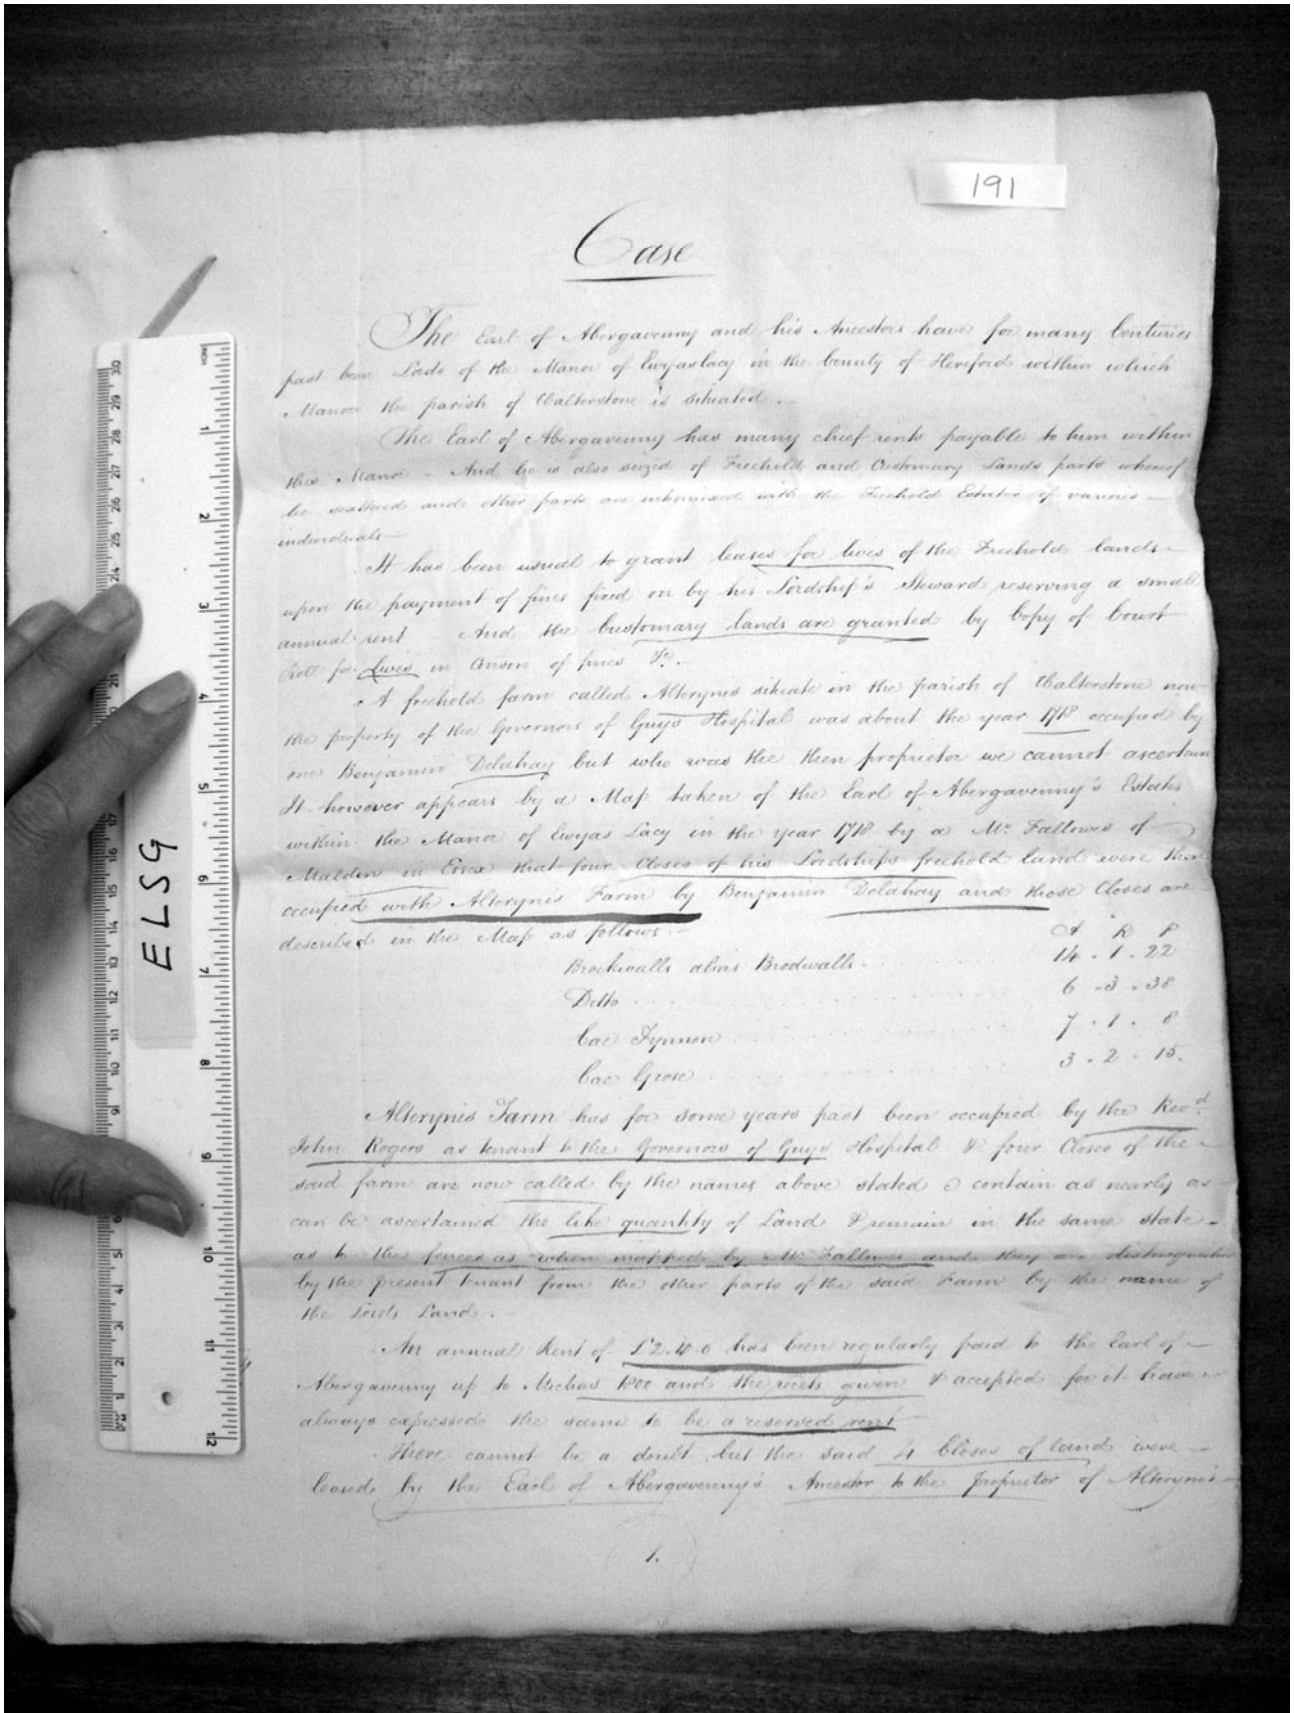 191
Case
The Earl of Abergavenny and his Ancestors have for many Centuries
past been Lords of the Manor of Ewyaslacy in the County of Hereford within which
Manor the parish of Walterstone is situated.
The Earl of Abergavenny has many chief rents payable to him within
this Manor - And he is also seized of Freehold and Customary Lands parts whereof
lie scattered and other parts are intermixed with the Freehold Estates of various -
individuals -
It has been usual to grant leases for lives of the Freehold lands -
upon the payment of fines fixed on by his Lordship's Steward reserving a small
annual rent - And the Customary lands are granted by Copy of Court
Roll for Lives in Conson of fines &c.
A freehold farm called Alterynis situate in the parish of Walterstone now
the property of the Governors of Guys Hospital was about the year 1718 occupied by
one Benjamin Delahay but who was the then proprietor we cannot ascertain
It however appears by a Map taken of the Earl of Abergavenny's Estates
within the Manor of Ewyas Lacy in the year 1718 by a Mr. Fallowes of -
Maldon in Essex that four Closes of his Lordships freehold land were then
occupied with Alterynis Farm by Benjamin Delahay and those Closes are
described in the Map as follows -
A R P
Brockwalls alias Brodwalls 14 - 1 - 22
Ditto 6 - 3 - 38
Cae Fynnon 7 - 1 - 8
Cae Grose 3 - 2 - 15.
Alterynis Farm has for some years past been occupied by the Revd.
John Rogers as tenant to the Governors of Guys Hospital & four Closes of the -
said farm are now called by the names above stated & contain as nearly as -
can be ascertained the like quantity of Land & remain in the same state -
as to the fences as when mapped by Mr. Fallowes and they are distinguished
by the present tenant from the other parts of the said Farm by the name of
the Lords Land.
An annual Rent of £2..0 has been regularly paid to the Earl of -
Abergavenny up to Michas 1800 and the recets given & accepted for it have -
always expressed the same to be a reserved rent
There cannot be a doubt but the said 4 Closes of land were -
leased by the Earl of Abergavenny's Ancestor to the Proprietor of Alterynis -
1.
ELSG